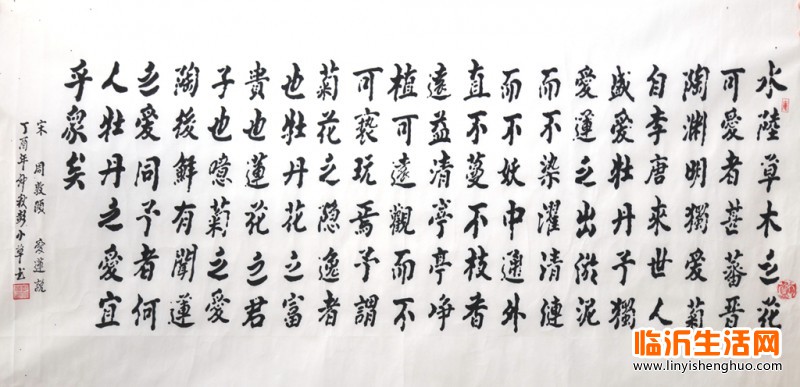 水陸草木之花
可愛者甚蕃晋
陶渊明獨愛菊
自李唐來世人
盛愛牡丹予獨
愛蓮之出淤泥
而不染濯清漣
而不妖中通外
直不蔓不枝香
遠益清亭亭净
植可遠觀而不
可褻玩焉予謂
菊花之隐逸者
也牡丹花之富
貴也蓮花之君
子也噫菊之愛
陶後鮮有聞蓮
之愛同予者何
人牡丹之愛宜
乎衆矣
宋 周敦頤 愛蓮説
丁酉年仲秋彭小草书
临沂生活网
www.linyishenghuo.com